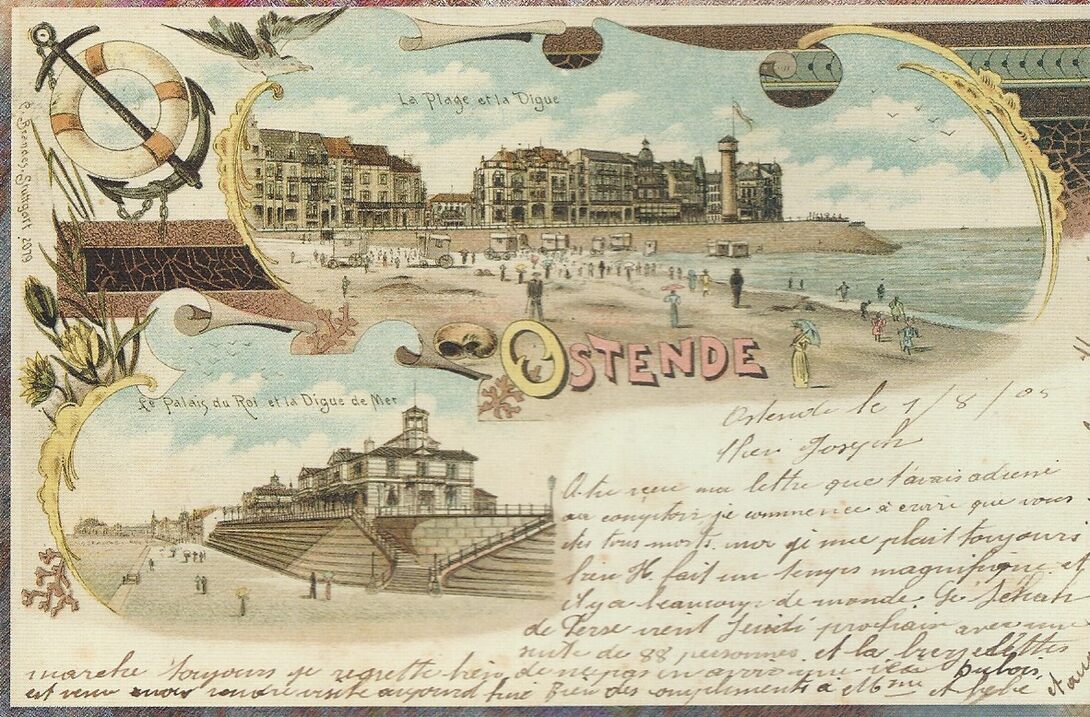 La Plage et la Digue
E. Brendes, Stuttgart 2079
OSTENDE
Le Palais du Roi et la Digue de Mer
Ostende le 1/8/05
Cher Joseph
As-tu reçu ma lettre que t'avais adressé
au comptoir je commence à croire que vous
êtes tous morts. moi je me plait toujours
bien Il fait un temps magnifique et
il y a beaucoup de monde. Le Schah
de Perse vient Jeudi prochain avec une
suite de 88 personnes et la
marche toujours je regrette bien de ne pas en avoir une Dubois
est venu nous rendre visite aujourd'hui Bien des compliments à Mme et